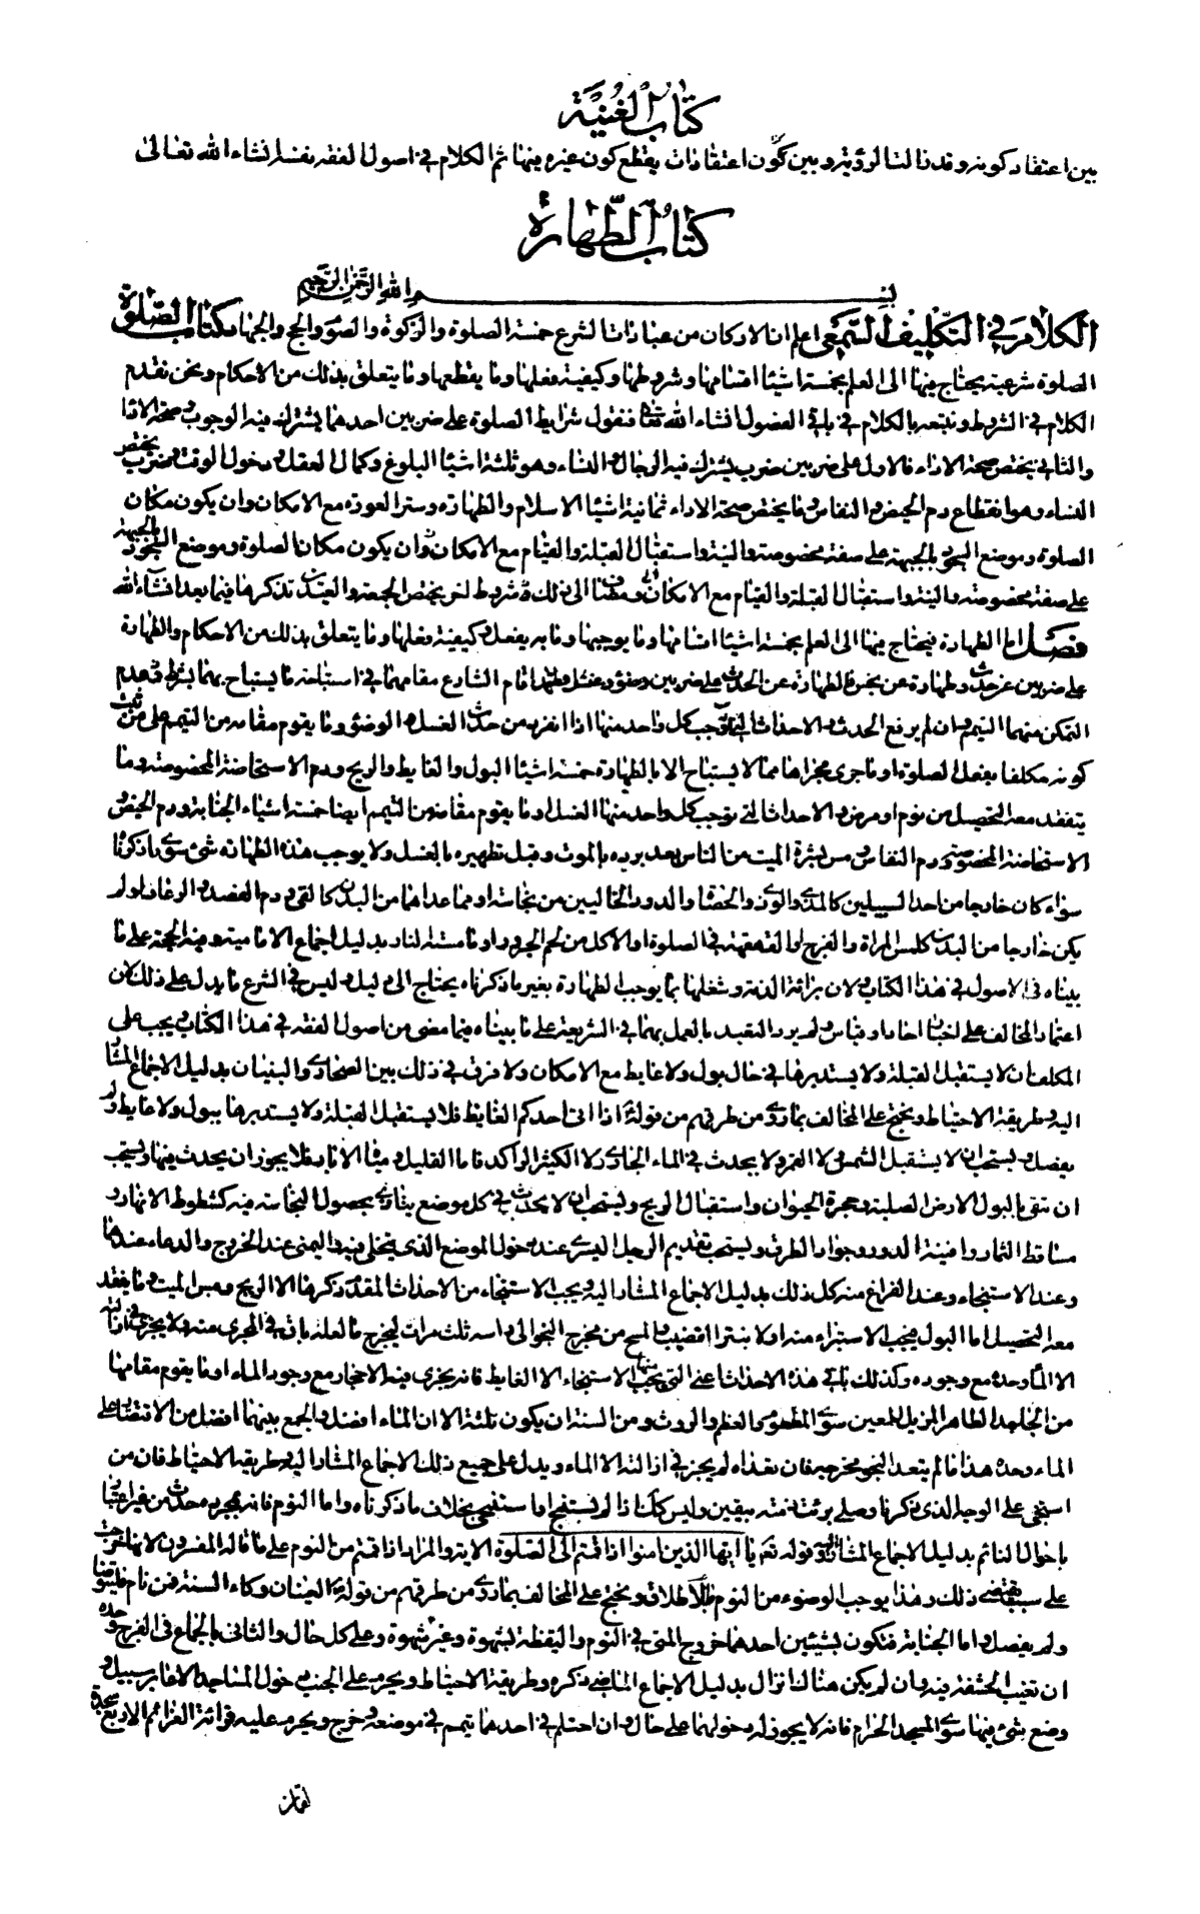 كتاب الغنية
بين اعتقاد كونه وقدنا لنا لرؤيته وبين كون اعتقادات يقطع كون غيره بينها ثم الكلام في اصول الفقه بنفسه انشاء الله تعالى
كتاب الطهارة
بسم الله الرحمن الرحيم
الكلام في التكليف السمعي اعلم ان الاركان من عبادات الشرع خمسة الصلوة والزكوة والصوم والحج والجهاد كتاب الصلوة
الصلوة شرعية يحتاج فيها الى العلم بخمسة اشياء اقسامها وشروطها وكيفية فعلها وما يقطعها وما يتعلق بذلك من الاحكام ونحن نقدم
الكلام في الشروط ونتبعه بالكلام في باقي الفصول انشاء الله تعالى فنقول شرايط الصلوة على ضربين احدهما يشترك فيه الوجوب وصحة الاداء
والثاني يختص صحة الاداء فالاول على ضربين ضرب يشترك فيه الرجال والنساء وهو ثلثة اشياء البلوغ وكمال العقل ودخول الوقت وضرب يختص
النساء وهو انقطاع دم الحيض والنفاس وما يختص صحة الاداء ثمانية اشياء الاسلام والطهارة وستر العورة مع الامكان وان يكون مكان
الصلوة وموضع السجود بالجبهة على صفة مخصوصة والنية واستقبال القبلة والقيام مع الامكان وان يكون مكان الصلوة وموضع السجود بالجبهة
على صفة مخصوصة والنية واستقبال القبلة والقيام مع الامكان الى ذلك شروط اخر يختص الجمعة والعيدين نذكرها فيما بعد انشاء الله
فصل اما الطهارة فيحتاج فيها الى العلم بخمسة اشياء اقسامها وما يوجبها وما به يفعل وكيفية فعلها وما يتعلق بذلك من الاحكام والطهارة
على ضربين عن حدث وطهارة عن نجس فالطهارة عن الحدث على ضربين وضوء وغسل وقد اقام الشارع مقامهما في استباحة ما يستباح بهما بشرط عدم
التمكن منهما التيمم وان لم يرفع الحدث والاحداث التي توجب كل واحد منها اذا انفرد من حدث الغسل الوضوء وما يقوم مقامه من التيمم على من ثبت
كونه مكلفا بفعل الصلوة او ما جرى مجراها مما لا يستباح الا بالطهارة خمسة اشياء البول والغايط والريح ودم الاستحاضة المخصوصة وما
يتفقد معه التحصيل من نوم او مرض والاحداث التي توجب كل واحد منها الغسل او ما يقوم مقامه من التيمم ايضا خمسة اشياء الجنابة ودم الحيض
الاستحاضة المخصوصة ودم النفاس ومس بشرة الميت من الناس بعد برده بالموت وقبل تطهيره بالغسل ولا يوجب هذه الطهارة شئ سوى ما ذكرنا
سواء كان خارجا من احد السبيلين كالمذي والوذي والحصاة والدود الخاليين من نجاسة او مما عداهما من البدن كالقئ ودم الفصد والرعاف او لم
يكن خارجا من البدن كلمس المراة والفرج او القهقهة في الصلوة او الاكل من لحم الجزور او ما مسته النار بدليل اجماع الامامية وفيه الحجة على ما
بيناه في الاصول في هذا الكتاب ولان براءة الذمة وشغلها بما يوجب الطهارة بغير ما ذكرناه يحتاج الى دليل وليس في الشرع ما يدل على ذلك لان
اعتماد المخالف على اخبار احاد او قياس ولم يرد التعبد بالعمل بهما في الشريعة على ما بيناه فيما مضى من اصول الفقه في هذا الكتاب ويجب على
المكلف ان لا يستقبل القبلة ولا يستدبرها في حال بول ولا غايط مع الامكان ولا فرق في ذلك بين الصحارى والبنيان بدليل الاجماع المشار
اليه وطريقة الاحتياط ونحتج على المخالف بما روى من طرقهم من قوله اذا اتى احدكم الغايط فلا يستقبل القبلة ولا يستدبرها ببول ولا غايط ولم
يفصل ويستحب ان لا يستقبل الشمس ولا القمر ولا يحدث في الماء الجاري ولا الكثير الراكد فاما القليل ومياه الابار فلا يجوز ان يحدث فيها ويستحب
ان تتقي بالبول الارض الصلبة وحجرة الحيوان واستقبال الريح ويستحب ان لا يحدث في كل موضع يتاذى بحصول النجاسة فيه كشطوط الانهار و
مساقط الثمار وافنية الدور وجواد الطرق ويستحب تقديم الرجل اليسرى عند دخول الموضع الذي يتخلى فيه واليمنى عند الخروج والدعاء عندهما
وعند الاستنجاء وعند الفراغ منه كل ذلك بدليل الاجماع المشار اليه ويجب الاستنجاء من الاحداث المقدم ذكرها الا الريح ومس الميت وما يفقد
معه التحصيل اما البول فيجب الاستبراء منه اولا بنتر القضيب والمسح من مخرج النجو الى راسه ثلث مرات ليخرج ما لعله باق في المجرى منه ولا يجزي في ازالته
الا الماء وحده مع وجوده وكذلك باقي هذه الاحداث اعني التي يجب منها الاستنجاء الا الغايط فانه يجزى فيه الاحجار مع وجود الماء او ما يقوم مقامها
من الجامد الطاهر المزيل للعين سوى المطعوم والعظم والروث ومن السنة ان يكون ثلثة الا ان الماء افضل والجمع بينهما افضل من الاقتصار على
الماء وحده هذا ما لم يتعد النجو مخرجه فان تعداه لم يجز في ازالته الا الماء ويدل على جميع ذلك الاجماع المشار اليه وطريقة الاحتياط فان من
استنجى على الوجه الذي ذكرنا وصلى برئت ذمته بيقين وليس كذلك اذا لم يستنج او استنجى بخلاف ما ذكرناه واما النوم فانه بمجرده حدث من غير اعتبار
باحوال النائم بدليل الاجماع المشار اليه وقوله تعالى يا ايها الذين امنوا اذا قمتم الى الصلوة الاية والمراد اذا قمتم من النوم على ما قاله المفسرون لانها خرجت
على سبب يقتضي ذلك وهذا يوجب الوضوء من النوم بالاطلاق ونحتج على المخالف بما روى من طرقهم من قوله العينان وكاء السته فمن نام فليتوضا
ولم يفصل واما الجنابة فتكون بشيئين احدهما خروج المني في النوم واليقظة بشهوة وغير شهوة وعلى كل حال والثاني بالجماع في الفرج وحده
ان تغيب الحشفة فيه وان لم يكن هناك انزال بدليل الاجماع الماضي ذكره وطريقة الاحتياط ويحرم على الجنب دخول المساجد الا عابر سبيل و
وضع شئ فيها سوى المسجد الحرام فانه لا يجوز له دخولهما على حال وان احتلم في احدهما يتمم في موضعه وخرج ويحرم عليه قرائة العزائم الاربع سجدة
لقمان